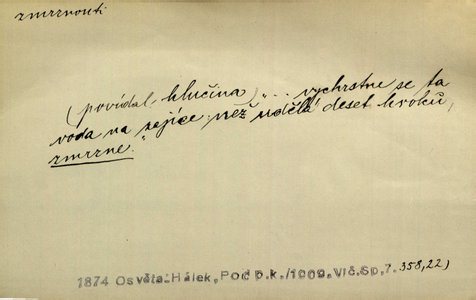 zmrznouti
(povídal hlučina) "... vychrstne se ta
voda na zajíce; než udělá deset kroků,
zmrzne."
1874 Osvěta. Hálek, Pod p.k./1909. Vlč.Sp.7. 358,22)